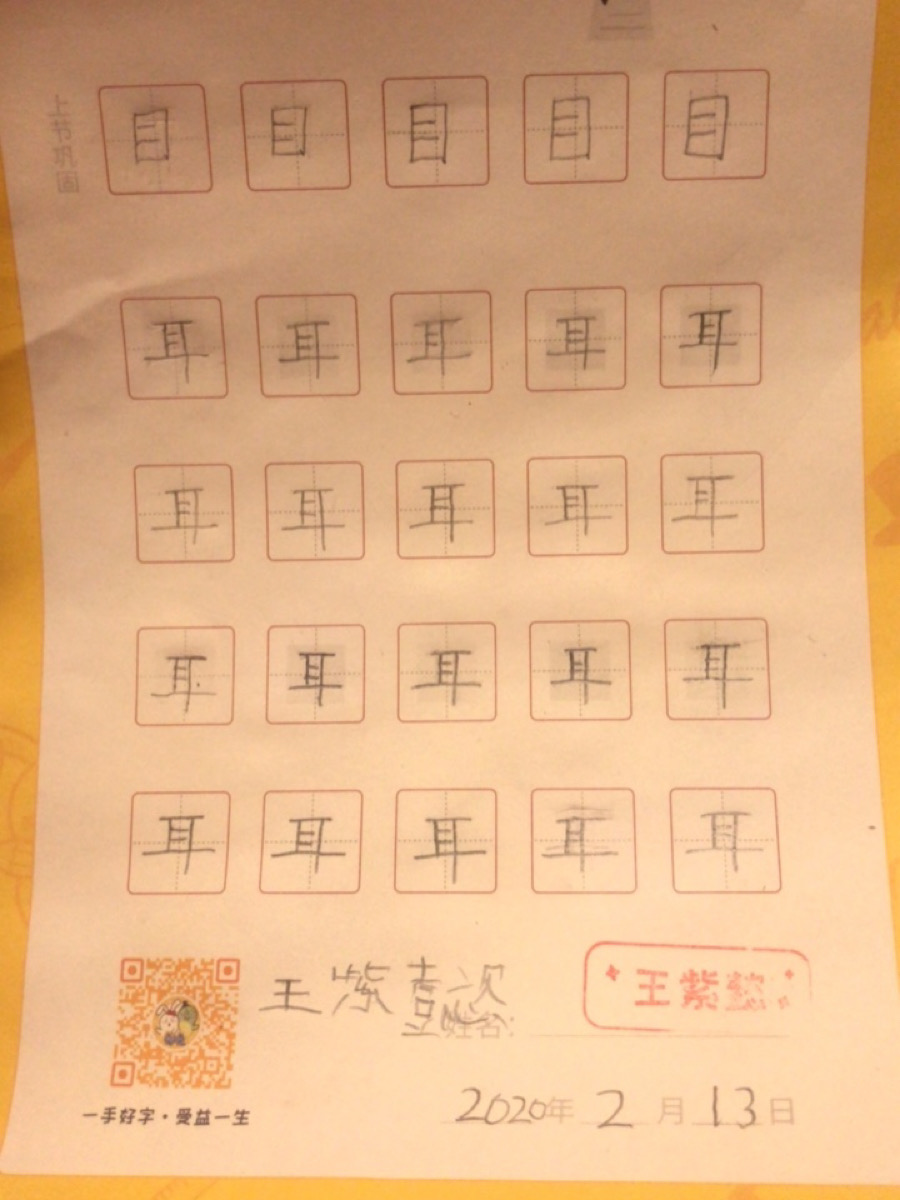 上节巩固
目 目 目 目 目
耳 耳 耳 耳 耳
耳 耳 耳 耳 耳
耳 耳 耳 耳 耳
耳 耳 耳 耳 耳
王紫懿
姓名:
王紫懿
2020年2月13日
一手好字·受益一生